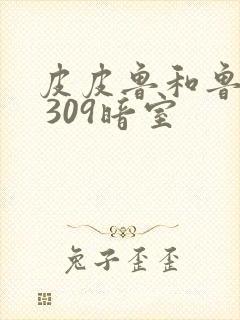 皮皮鲁和鲁
309暗室
兔子歪歪